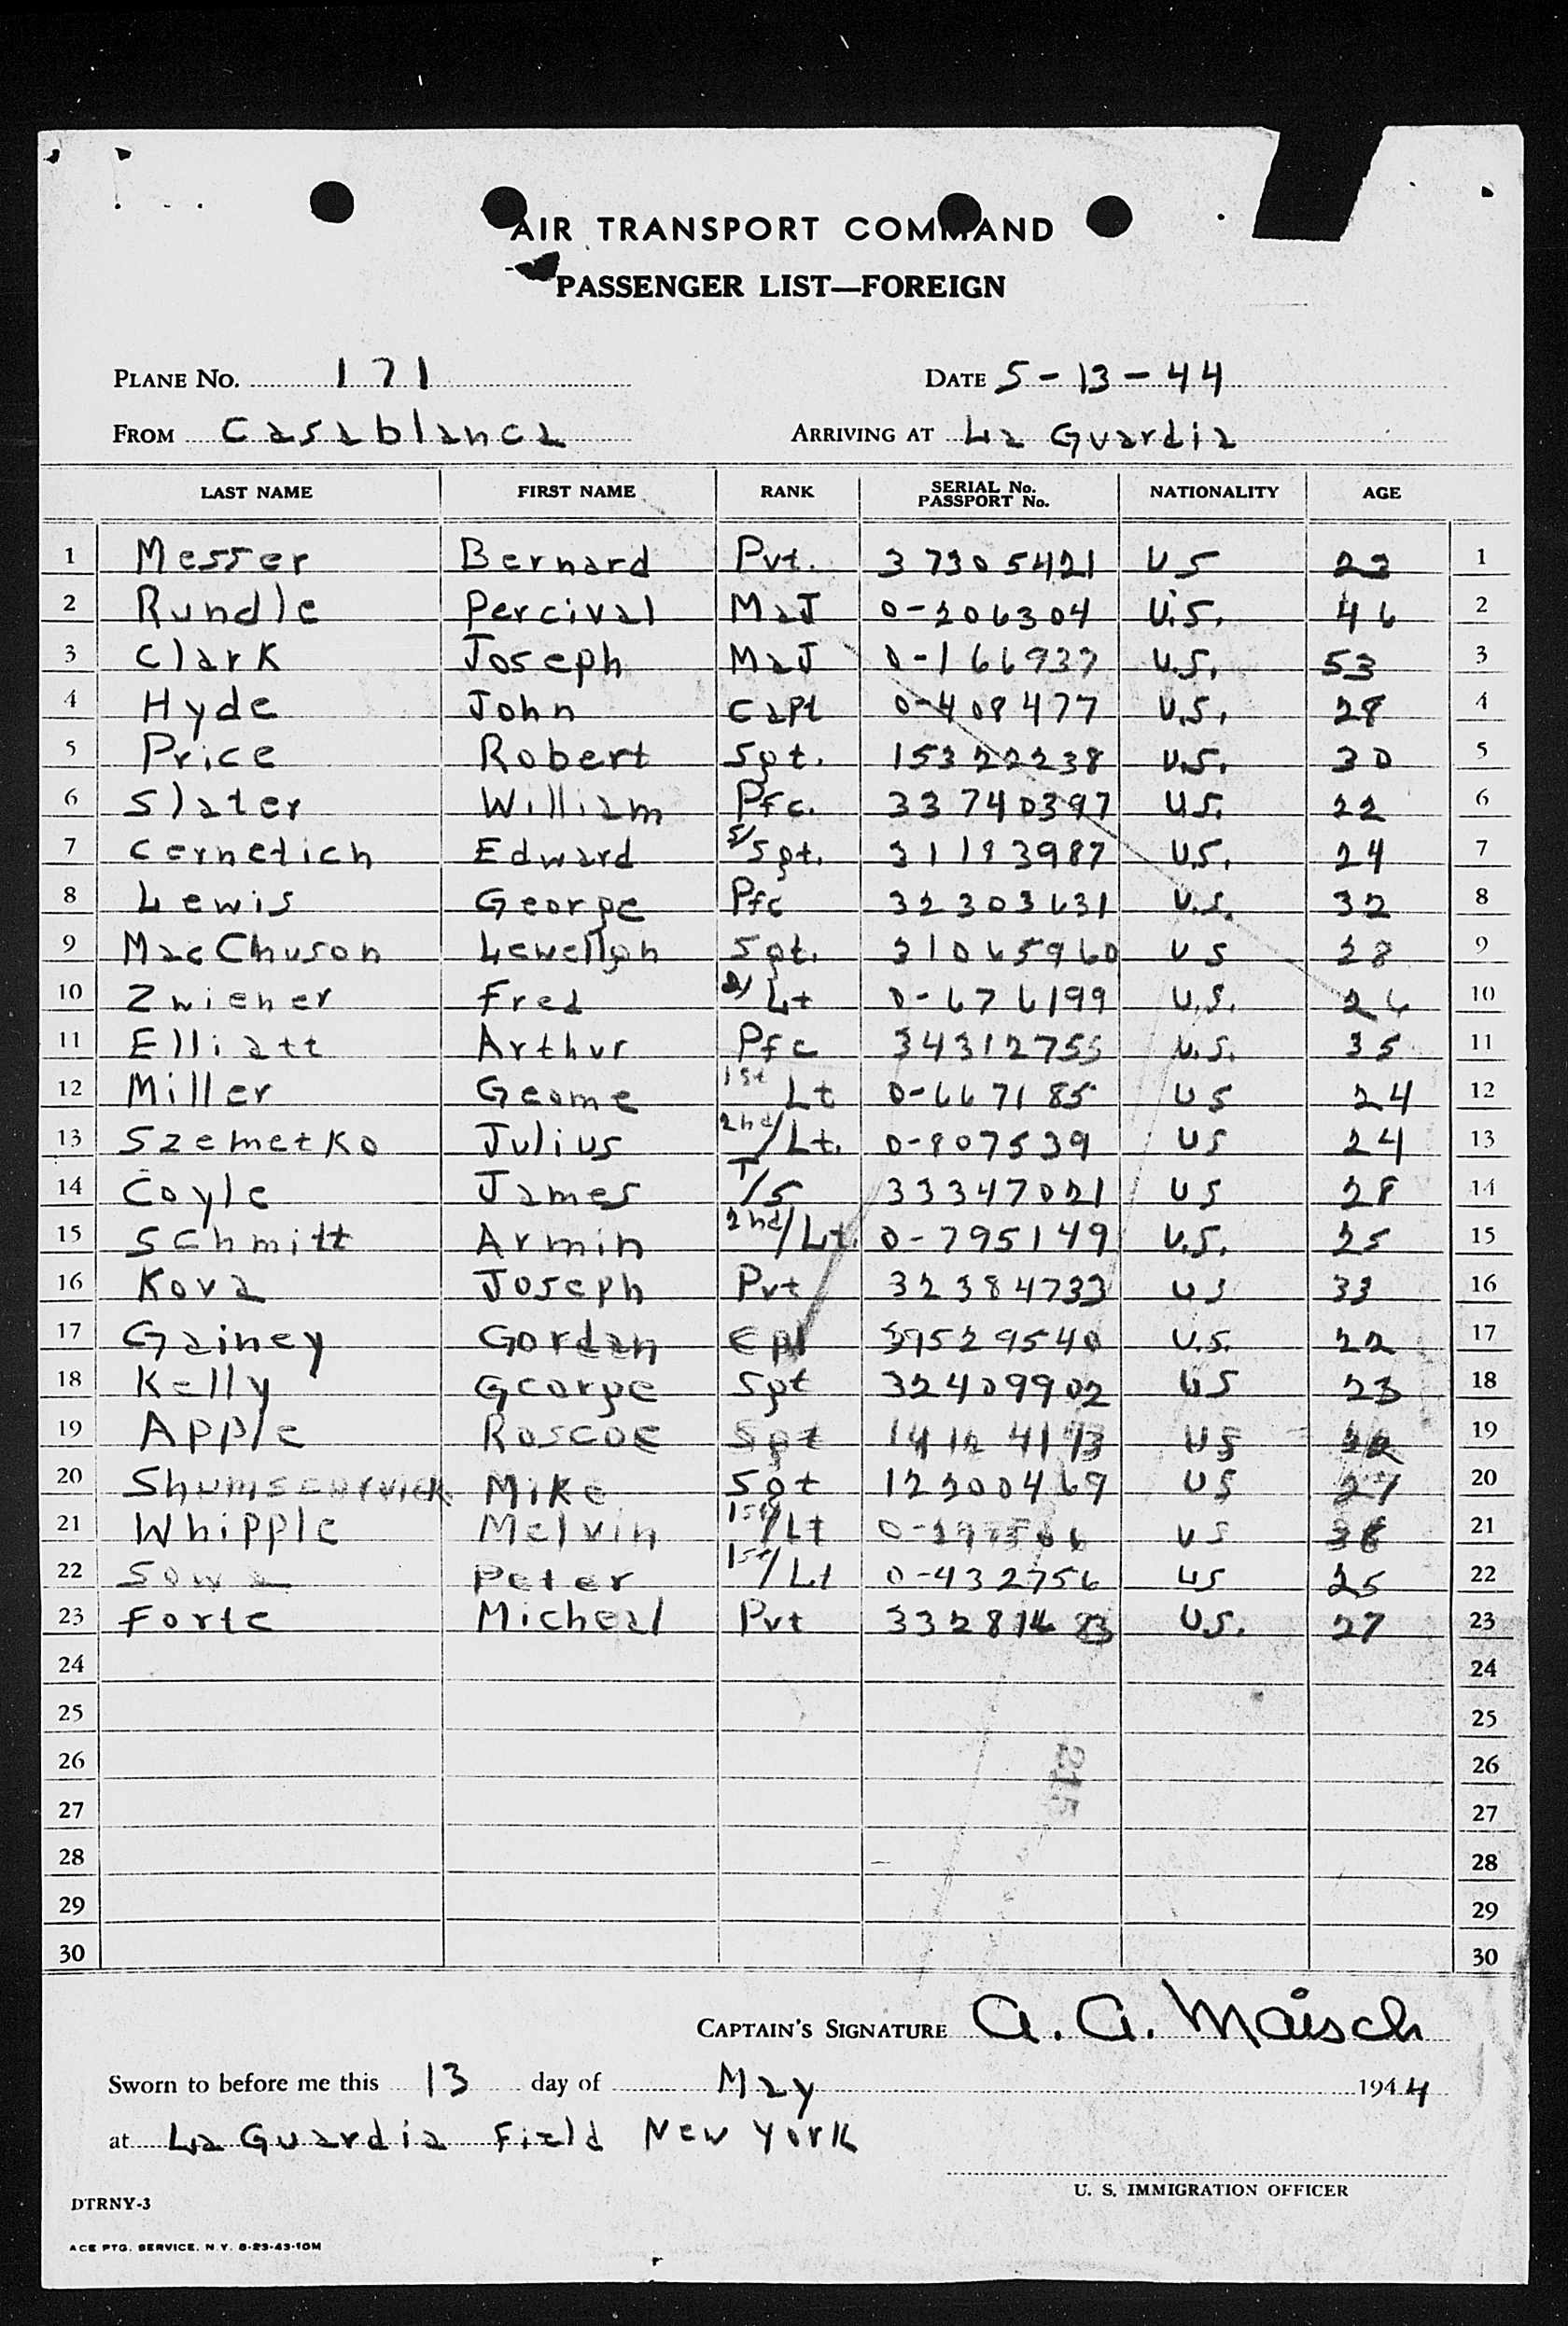 AIR TRANSPORT COMMAND
PASSENGER LIST—FOREIGN
PLANE No. 171 DATE 5-13-44
FROM Casablanca ARRIVING AT La Guardia
LAST NAME FIRST NAME RANK SERIAL No. PASSPORT No. NATIONALITY AGE
1 Messer Bernard Pvt. 37305421 US 23 1
2 Rundle Percival MaJ 0-206304 U.S. 46 2
3 Clark Joseph MaJ 0-166937 U.S. 53 3
4 Hyde John Capt 0-408477 U.S. 28 4
5 Price Robert Sgt. 15322238 U.S. 30 5
6 Slater William Pfc. 33740397 U.S. 22 6
7 Cernetich Edward S/Sgt. 31183987 U.S. 24 7
8 Lewis George Pfc 32303631 U.S. 32 8
9 MacChuson Sgt. 31065960 US 28 9
10 Zwiener Fred 2/Lt 0-676199 U.S. 26 10
11 Elliatt Arthur Pfc 34312755 U.S. 35 11
12 Miller Geome 1st Lt 0-667185 US 24 12
13 Szemetko Julius 2nd/Lt. 0-807539 US 24 13
14 Coyle James T/5 33347021 US 28 14
15 Schmitt Armin 2nd/Lt. 0-795149 U.S. 25 15
16 Kova Joseph Pvt 32384733 US 33 16
17 Gainey Gordan Cpl 39529540 U.S. 22 17
18 Kelly George Sgt 32409902 US 23 18
19 Apple Roscoe Sgt US 19
20 Mike Sgt 12200469 US 27 20
21 Whipple Melvin 1st/Lt US 21
22 Sowa Peter 1st/Lt 0-432756 US 25 22
23 Forte Micheal Pvt U.S. 27 23
24 24
25 25
26 26
27 27
28 28
29 29
30 30
215
CAPTAIN'S SIGNATURE A. A. Maisch
Sworn to before me this 13 day of May 1944
at La Guardia Field New York
U. S. IMMIGRATION OFFICER
DTRNY-3
ACE PTG. SERVICE, N.Y. 8-23-43-10M